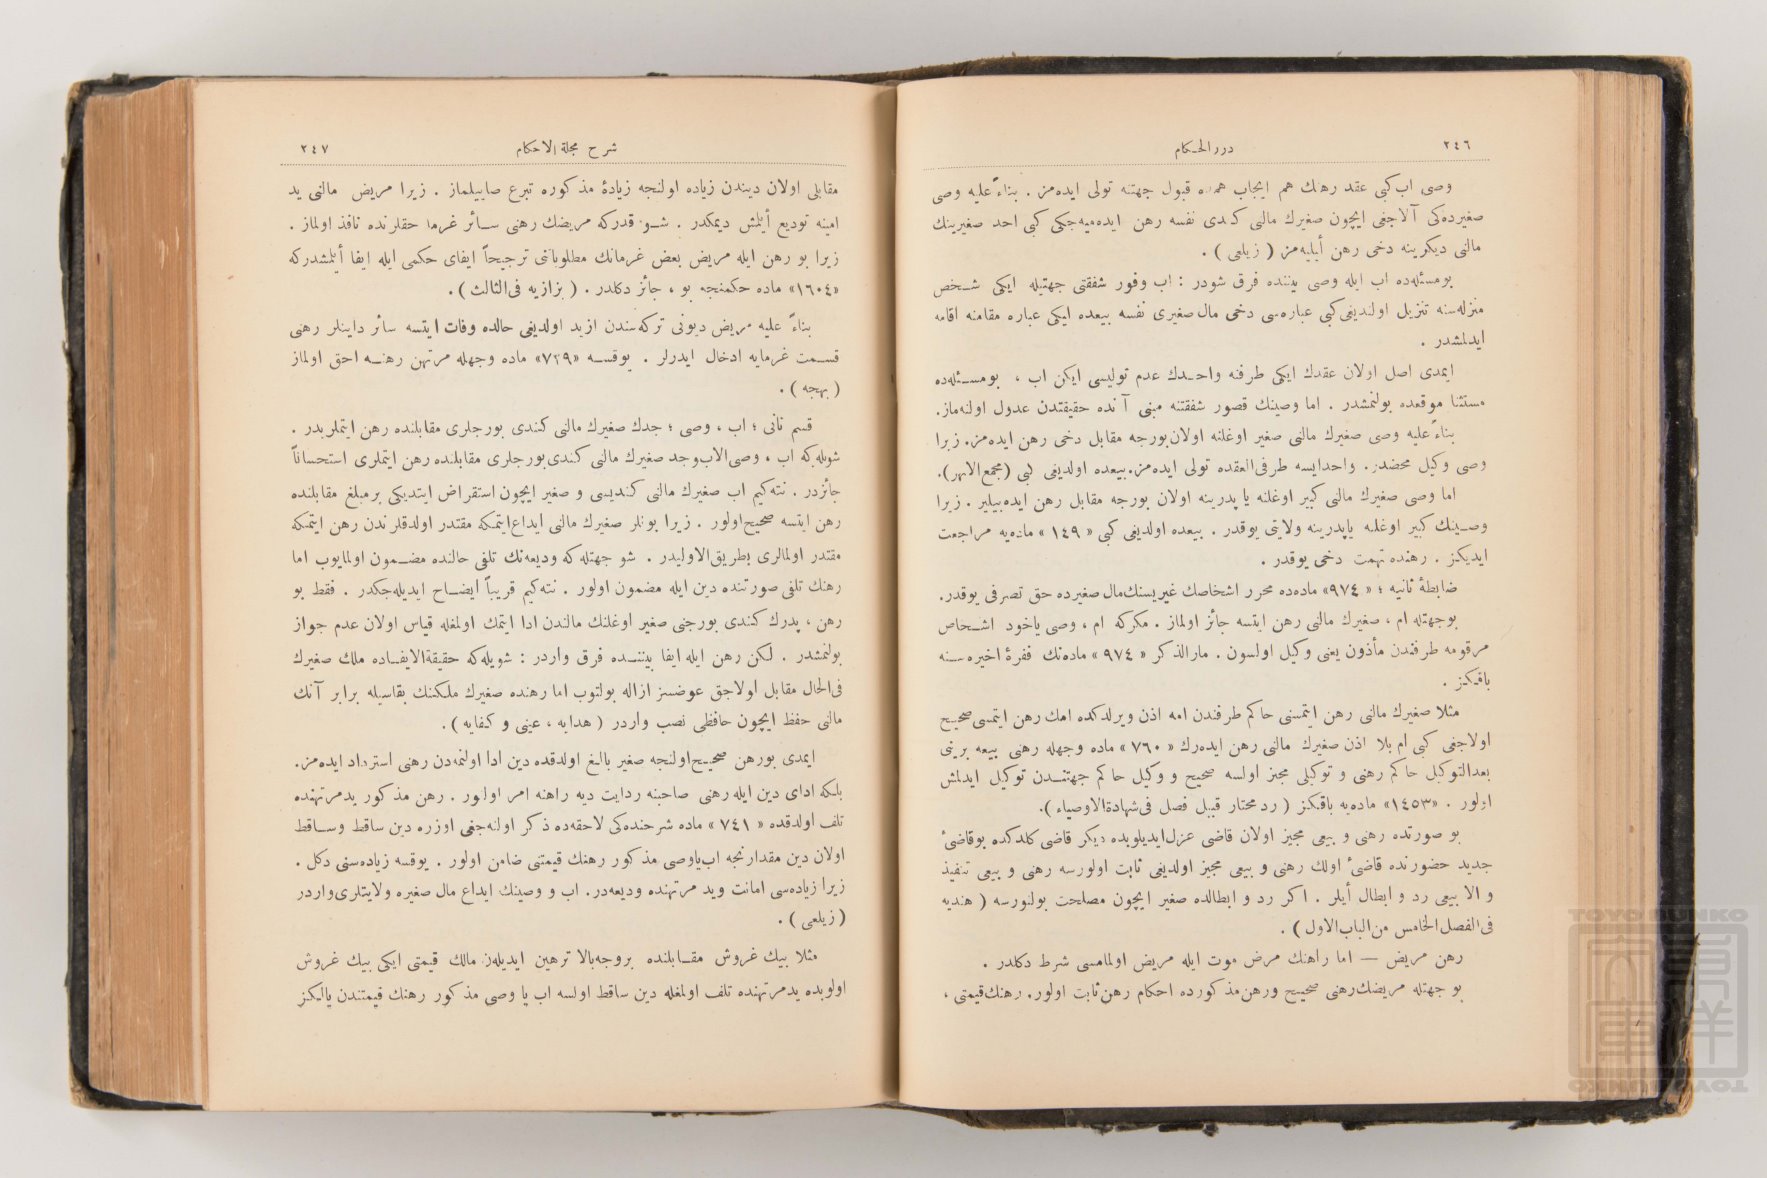 ٢٤٦
درر الحكام
وصی اب كبی عقد رهنك هم ایجاب همده قبول جهتنه تولی ایده‌مز . بناءً علیه وصی
صغیرده‌كی آلاجغی ایچون صغیرك مالنی كندی نفسه رهن ایده‌میه‌جكی كبی احد صغیرینك
مالنی دیكرینه دخی رهن أیلیه‌مز ( زیلعی ) .
بومسئله‌ده اب ایله وصی بیننده فرق شودر : اب وفور شفقتی جهتیله ایكی شخص
منزله‌سنه تنزیل اولندیغی كبی عباره‌سی دخی مال صغیری نفسه بیعده ایكی عباره مقامنه اقامه
ایدلمشدر .
ایمدی اصل اولان عقدك ایكی طرفنه واحدك عدم تولیسی ایكن اب ، بومسئله‌ده
مستثنا موقعده بولنمشدر . اما وصینك قصور شفقتنه مبنی آنده حقیقتدن عدول اولنه‌ماز.
بناءً علیه وصی صغیرك مالنی صغیر اوغلنه اولان بورجه مقابل دخی رهن ایده‌مز. زیرا
وصی وكیل محضدر. واحدایسه طرفی‌العقده تولی ایده‌مز.بیعده اولدیغی كبی (مجمع‌الانهر).
اما وصی صغیرك مالنی كبیر اوغلنه یا پدرینه اولان بورجه مقابل رهن ایده‌بیلیر . زیرا
وصینك كبیر اوغلنه یاپدرینه ولایتی یوقدر . بیعده اولدیغی كبی « ١٤٩ » ماده‌یه مراجعت
ایدیكز . رهنده تهمت دخی یوقدر .
ضابطۀ ثانیه ؛ « ٩٧٤» ماده‌ده محرر اشخاصك غیریسنك‌مال صغیرده حق تصرفی یوقدر.
بوجهتله ام ، صغیرك مالنی رهن ایتسه جائز اولماز . مكركه ام ، وصی یاخود اشخاص
مرقومه طرفندن مأذون یعنی وكیل اولسون . مارالذكر « ٩٧٤ » ماده‌نك فقرۀ اخیره‌سنه
باقیكز .
مثلا صغیرك مالنی رهن ایتمسنی حاكم طرفندن امه اذن ویرلدكده امك رهن ایتمسی صحیح
اولاجغی كبی ام بلا اذن صغیرك مالنی رهن ایده‌رك « ٧٦٠ » ماده وجهله رهنی بیعه برینی
بعدالتوكیل حاكم رهنی و توكیلی مجیز اولسه صحیح و وكیل حاكم جهتندن توكیل ایدلمش
اولور . «١٤٥٣» ماده‌یه باقیكز ( رد محتار قبیل فصل فی‌شهادةالاوصیاء ).
بو صورتده رهنی و بیعی مجیز اولان قاضی عزل‌ایدیلوبده دیكر قاضی كلدكده بوقاضیٔ
جدید حضورنده قاضیٔ اولك رهنی و بیعی مجیز اولدیغی ثابت اولورسه رهنی و بیعی تنفیذ
و الا بیعی رد و ابطال أیلر . اكر رد و ابطالده صغیر ایچون مصلحت بولنورسه ( هندیه
فی‌الفصل‌الخامس من‌الباب‌الاول ) .
رهن مریض — اما راهنك مرض موت ایله مریض اولمامسی شرط دكلدر .
بو جهتله مریضك‌رهنی صحیح ورهن‌مذكورده احكام رهن‌ثابت اولور. رهنك‌قیمتی ،
شرح مجلة الاحكام
٢٤٧
مقابلی اولان دیندن زیاده اولنجه زیادۀ مذكوره تبرع صاییلماز . زیرا مریض مالنی ید
امینه تودیع أیلمش دیمكدر . شو قدركه مریضك رهنی سائر غرما حقلرنده نافذ اولماز .
زیرا بو رهن ایله مریض بعض غرمانك مطلوباتنی ترجیحاً ایفای حكمی ایله ایفا أیلمشدركه
«١٦٠٤» ماده حكمنجه بو ، جائز دكلدر . ( بزازیه فی‌الثالث ) .
بناءً علیه مریض دیونی تركه‌سندن ازید اولدیغی حالده وفات ایتسه سائر داینلر رهنی
قسمت غرمایه ادخال ایدرلر . یوقسه «٧٢٩» ماده وجهله مرتهن رهنه احق اولماز
( بهجه ) .
قسم ثانی ؛ اب ، وصی ؛ جدك صغیرك مالنی كندی بورجلری مقابلنده رهن ایتملریدر .
شویله‌كه اب ، وصی‌الاب‌وجد صغیرك مالنی كندی‌بورجلری مقابلنده رهن ایتملری استحساناً
جائزدر . نته‌كیم اب صغیرك مالنی كندیسی و صغیر ایچون استقراض ایتدیكی برمبلغ مقابلنده
رهن ایتسه صحیح‌اولور . زیرا بونلر صغیرك مالنی ایداع‌ایتمكه مقتدر اولدقلرندن رهن ایتمكه
مقتدر اولمالری بطریق‌الاولیدر . شو جهتله‌كه ودیعه‌نك تلفی حالنده مضمون اولمایوب اما
رهنك تلفی صورتنده دین ایله مضمون اولور . نته‌كیم قریباً ایضاح ایدیله‌جكدر . فقط بو
رهن ، پدرك كندی بورجنی صغیر اوغلنك مالندن ادا ایتمك اولمغله قیاس اولان عدم جواز
بولنمشدر . لكن رهن ایله ایفا بیننده فرق واردر : شویله‌كه حقیقةالایفاده ملك صغیرك
فی‌الحال مقابل اولاجق عوضسز ازاله بولنوب اما رهنده صغیرك ملكنك بقاسیله برابر آنك
مالنی حفظ ایچون حافظی نصب واردر ( هدایه ، عینی و كفایه ) .
ایمدی بورهن صحیح‌اولنجه صغیر بالغ اولدقده دین ادا اولنمه‌دن رهنی استرداد ایده‌مز.
بلكه ادای دین ایله رهنی صاحبنه ردایت دیه راهنه امر اولور . رهن مذكور یدمرتهنده
تلف اولدقده « ٧٤١ » ماده شرحنده‌كی لاحقه‌ده ذكر اولنه‌جغی اوزره دین ساقط وساقط
اولان دین مقدارنجه اب‌یاوصی مذكور رهنك قیمتنی ضامن اولور . یوقسه زیاده‌سنی دكل .
زیرا زیاده‌سی امانت وید مرتهنده ودیعه‌در. اب و وصینك ایداع مال صغیره ولایتلری‌واردر
( زیلعی ) .
مثلا بیك غروش مقابلنده بروجه‌بالا ترهین ایدیلن مالك قیمتی ایكی بیك غروش
اولوبده یدمرتهنده تلف اولمغله دین ساقط اولسه اب یا وصی مذكور رهنك قیمتندن یالكز
TOYO BUNKO
東洋文庫
TOYO BUNKO